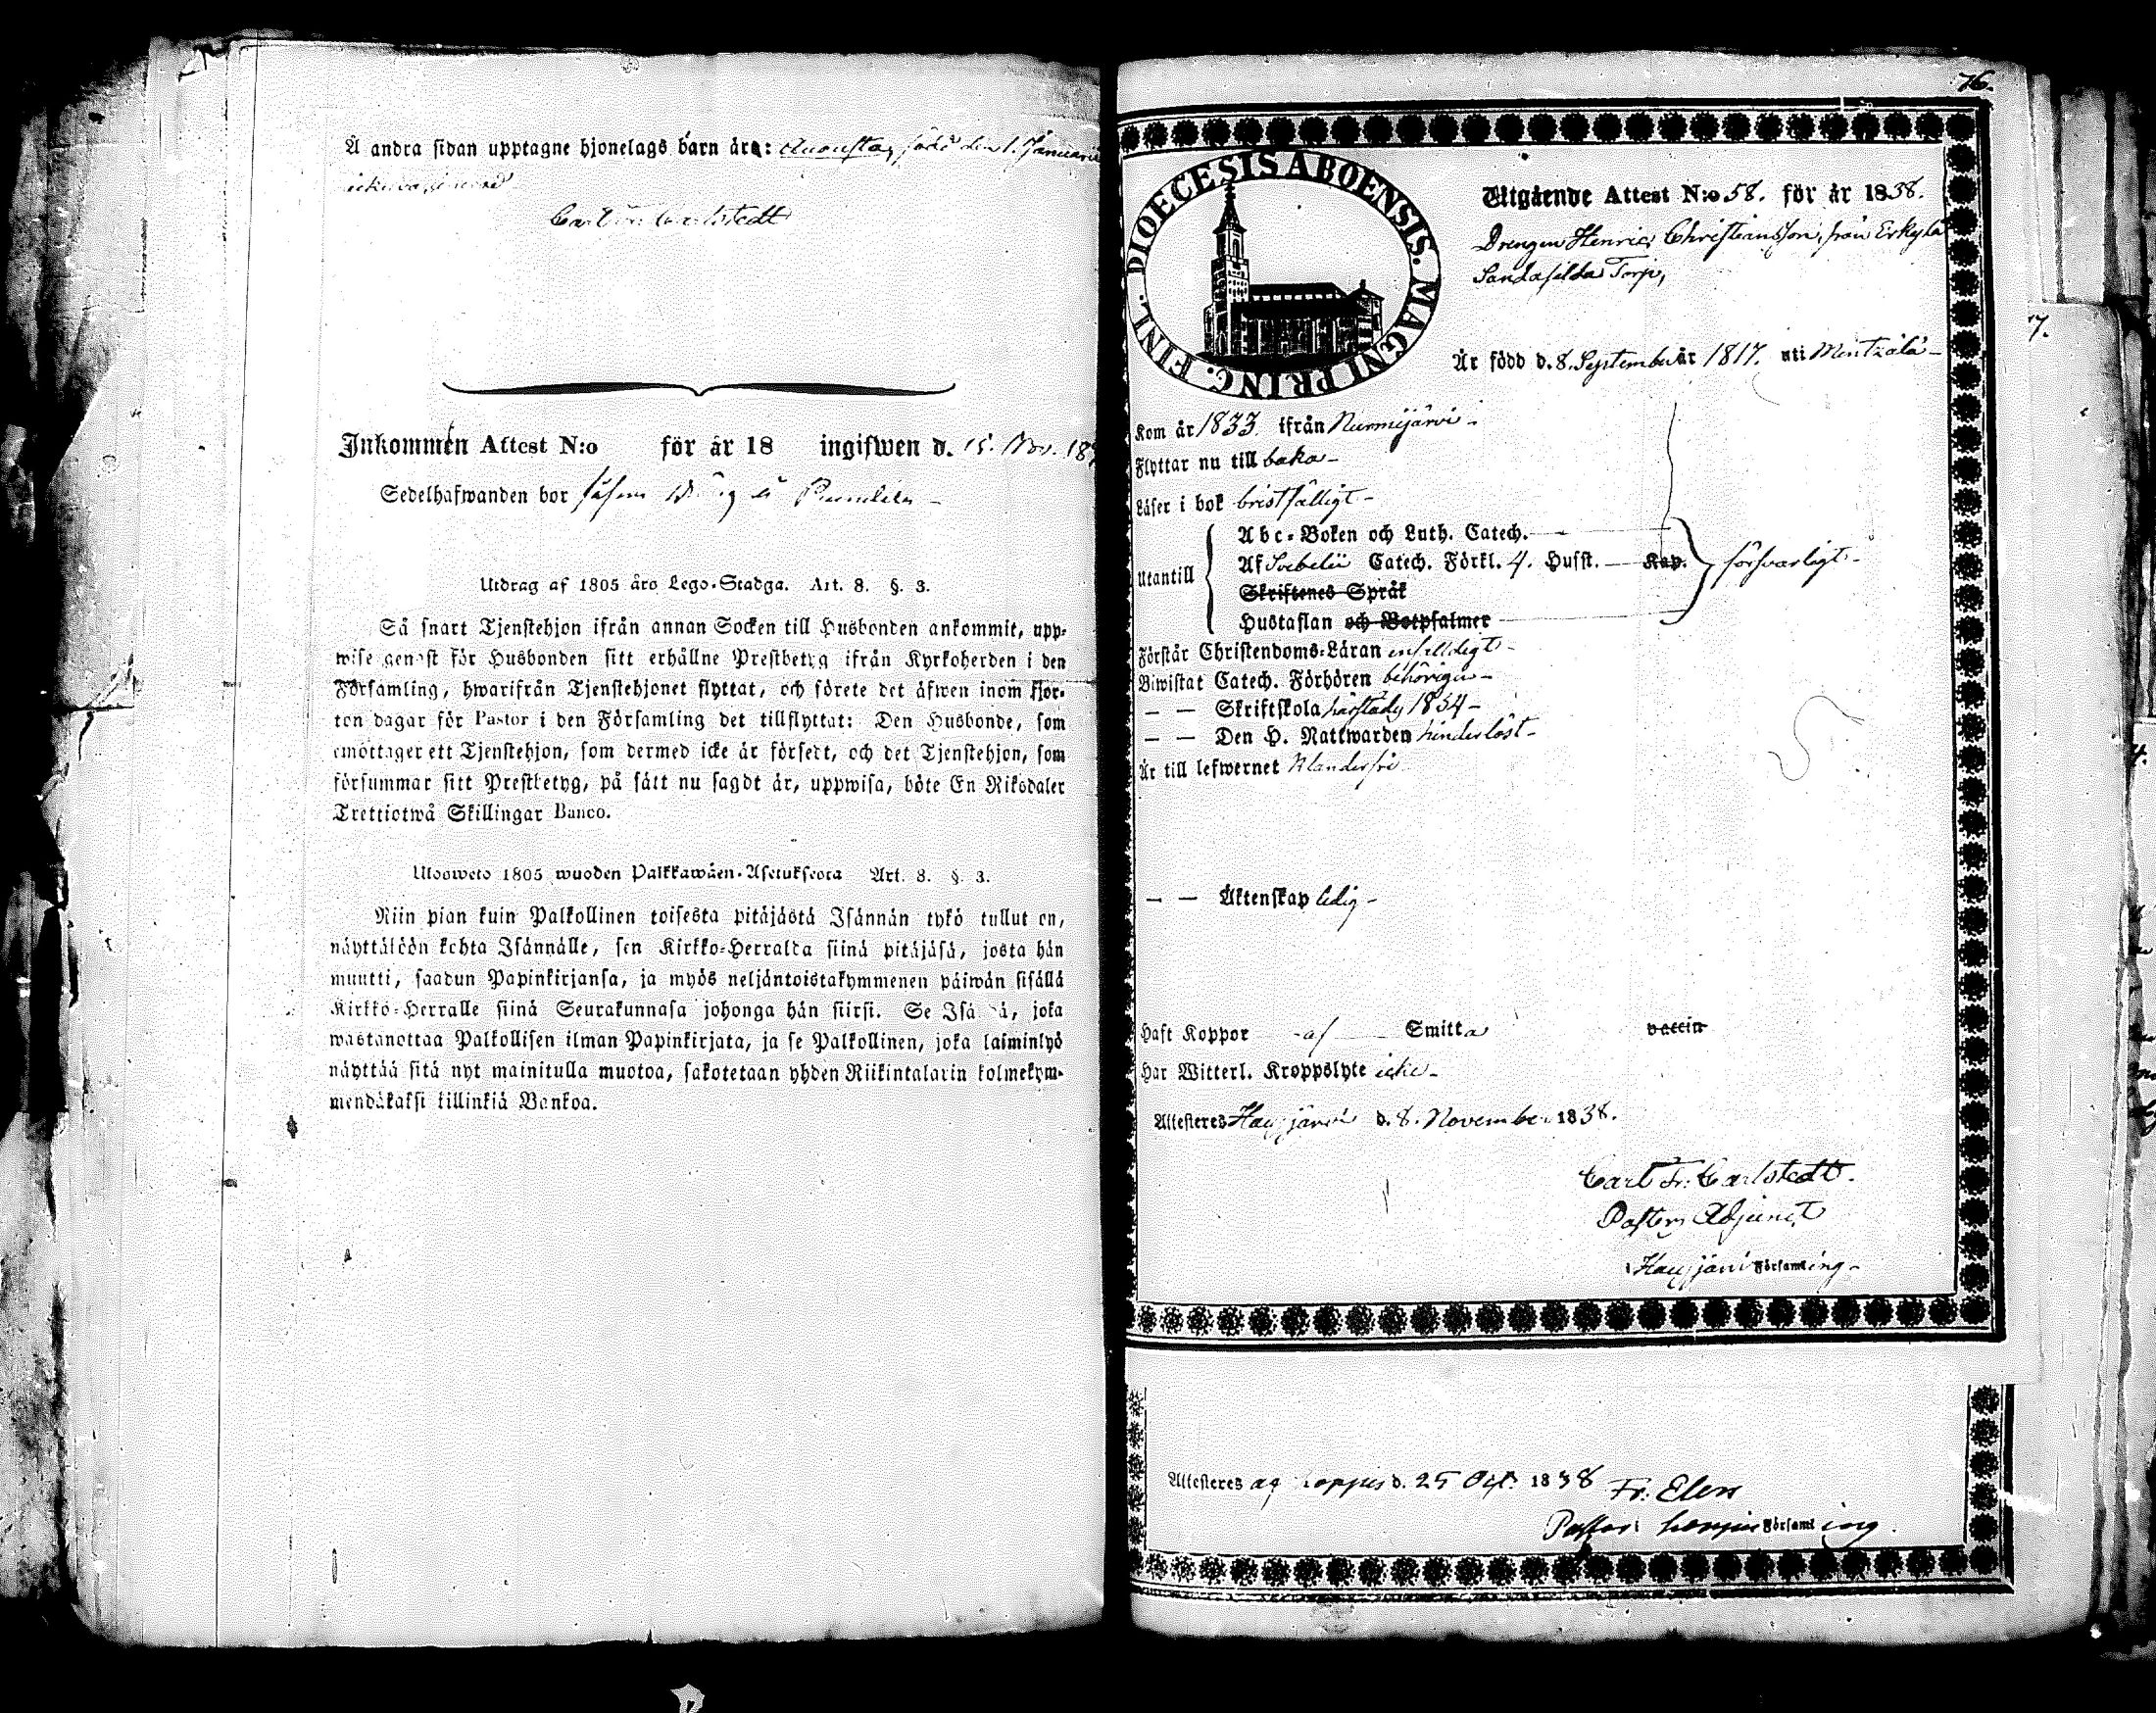 Å andra sidan upptagne hjonelags barn äro: Augusta, född den 1. Januarii
icke vaccinerad
Carl Fr: Carlstedt
Inkommen Attest N:o för år 18 ingifwen d. 15. Nov. 183
Sedelhafwanden bor såsom dräng å
Utdrag af 1805 års Lego-Stadga. Art. 8. §. 3.
Så snart Tjenstehjon ifrån annan Socken till Husbonden ankommit, upp-
wise genast för Husbonden sitt erhållne Prestbetyg ifrån Kyrkoherden i den
Församling, hwarifrån Tjenstehjonet flyttat, och förete det äfwen inom fjor-
ton dagar för Pastor i den Församling det tillflyttat: Den Husbonde, som
emottager ett Tjenstehjon, som dermed icke är försedt, och det Tjenstehjon, som
försummar sitt Prestbetyg, på sätt nu sagdt är, uppwisa, böte En Riksdaler
Trettiotwå Skillingar Banco.
Ulosweto 1805 wuoden Palkkawäen-Asetuksesta Art. 8. §. 3.
Niin pian kuin Palkollinen toisesta pitäjästä Isännän tykö tullut on,
näyttäköön kohta Isännälle, sen Kirkko-Herralta siinä pitäjäsä, josta hän
muutti, saadun Papinkirjansa, ja myös neljäntoistakymmenen päiwän sisällä
Kirkko-Herralle siinä Seurakunnasa johonga hän siirsi. Se Isäntä, joka
wastanottaa Palkollisen ilman Papinkirjata, ja se Palkollinen, joka laiminlyö
näyttää sitä nyt mainitulla muotoa, sakotetaan yhden Riikintalarin kolmekym-
mendäkaksi killinkiä Bankoa.
76.
DIOECESIS ABOENSIS. MAGNI PRINC. FINL.
Utgående Attest N:o 58. för år 1838.
Drengen Henric Christiansson, från Erkylä
Torp,
Är född d. 8. September år 1817. uti Mentzälä
Kom år 1833 ifrån Nurmijärvi
Flyttar nu till baka
Läser i bok bristfälligt
Utantill
Abc-Boken och Luth. Catech.
Af Svebelii Catech. Förkl. 4. Husst. Kap.
Skriftenes Språk
Hustaflan och Botpsalmer
försvarligt
Förstår Christendoms-Läran enfaldigt
Biwistat Catech. Förhören behörigen
— — Skriftskola härstädes 1834
— — Den H. Nattwarden hinderlöst
Är till lefwernet klanderfri
— — Äktenskap ledig
Haft Koppor af Smitta vaccin
Har Witterl. Kroppslyte icke
Attesteres Hausjärvi d. 8. November 1838.
Carl Fr: Carlstedt.
Pastors Adjunct
i Hausjärvi Församling
Attesteres d. 25 Oct. 1838 Fr: Elers
Pastor i Loppis Församling.
7.